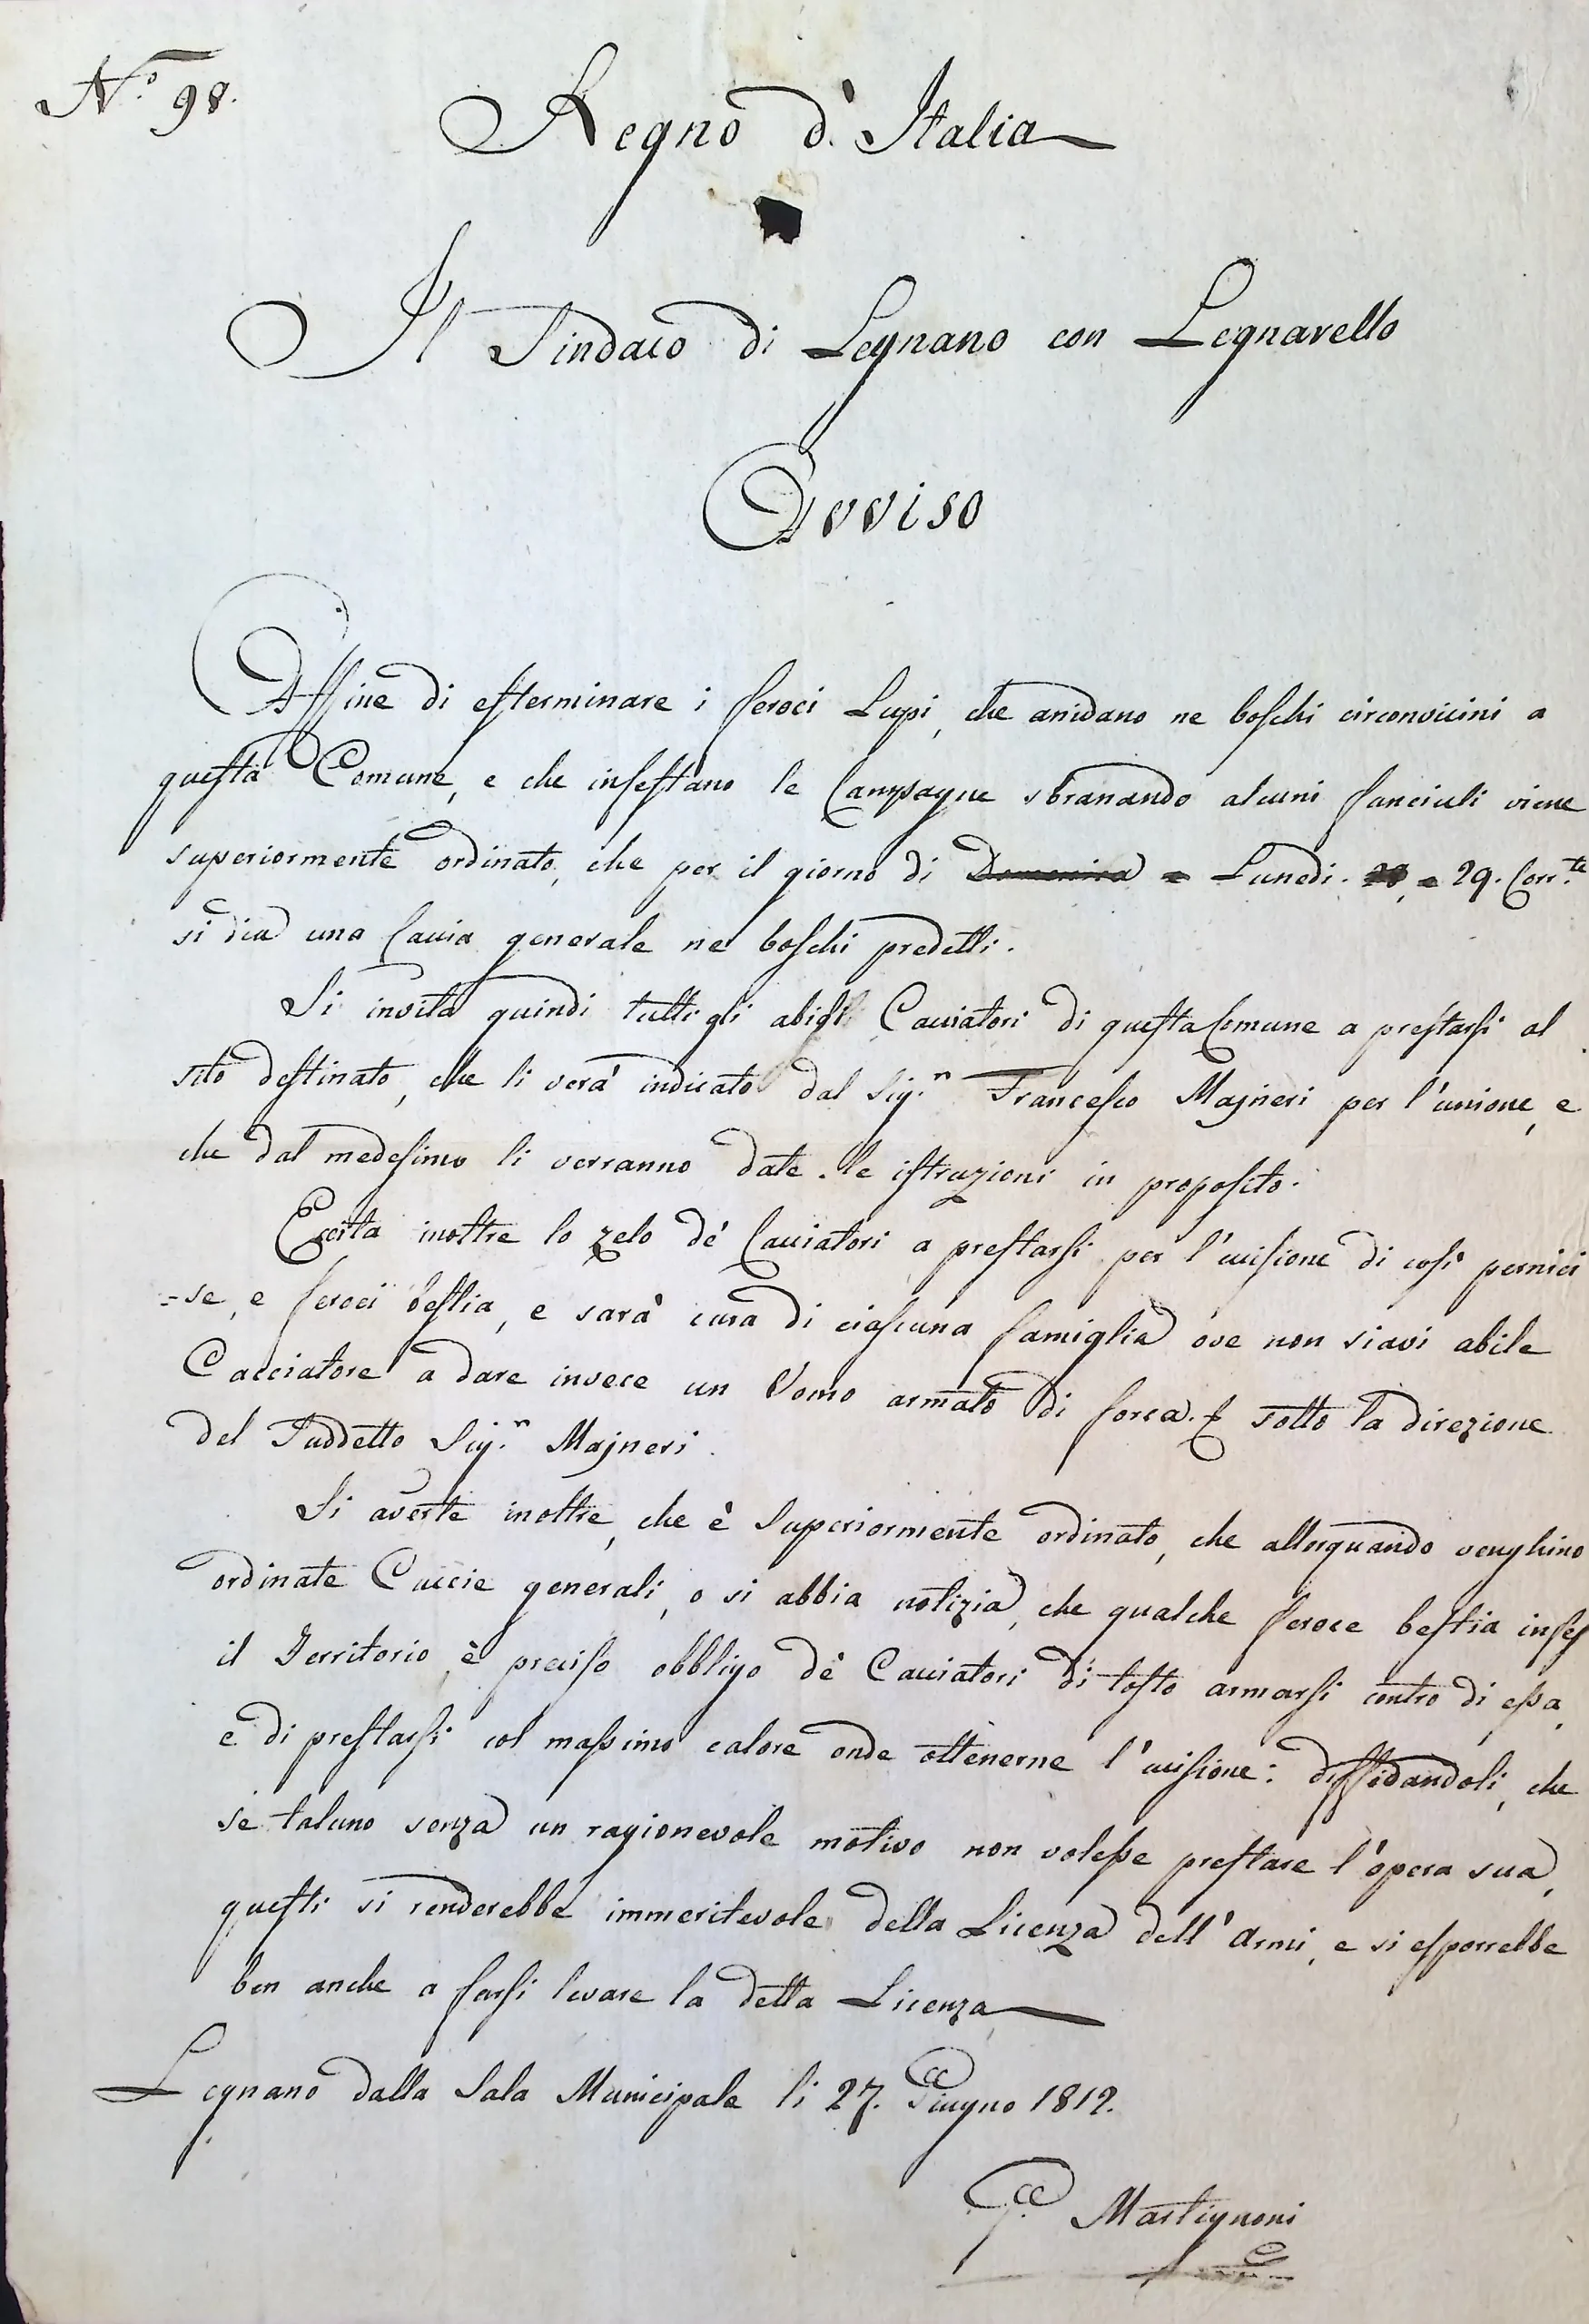 N.° 98.
Regno d'Italia
Il Sindaco di Legnano con Legnarello
Avviso
Affine di esterminare i feroci Lupi, che anidano ne boschi circonvicini a
questa Comune, e che infestano le Campagne sbranando alcuni fanciuli viene
superiormente ordinato, che per il giorno di Domenica e Lunedi. 28, e 29. Corr.te
si dia una Caccia generale ne boschi predetti.
Si invita quindi tutti gli abigli Cacciatori di questa Comune a prestarsi al
sito destinato, che li verà indicato dal Sig.r Francesco Majneri per l'unione, e
che dal medesimo li verranno date le istruzioni in proposito.
Eccita inoltre lo zelo de' Cacciatori a prestarsi per l'uccisione di così pernici
-se, e feroci bestia, e sarà cura di ciascuna famiglia ove non siavi abile
Cacciatore a dare invece un Uomo armato di forca. E sotto la direzione
del Suddetto Sig.r Majneri.
Si averte inoltre, che è Superiormente ordinato, che allorquando venghino
ordinate Caccie generali, o si abbia notizia, che qualche feroce bestia infes
il Territorio, è preciso obbligo de' Cacciatori di tosto armarsi contro di essa,
e di prestarsi col massimo calore onde ottenerne l'uccisione: diffidandoli, che
se taluno senza un ragionevole motivo non volesse prestare l'opera sua,
questi si renderebbe immeritevole della Licenza dell'Armi, e si esporrebbe
ben anche a farsi levare la detta Licenza
Legnano dalla Sala Municipale li 27. Giugno 1812.
Martignoni